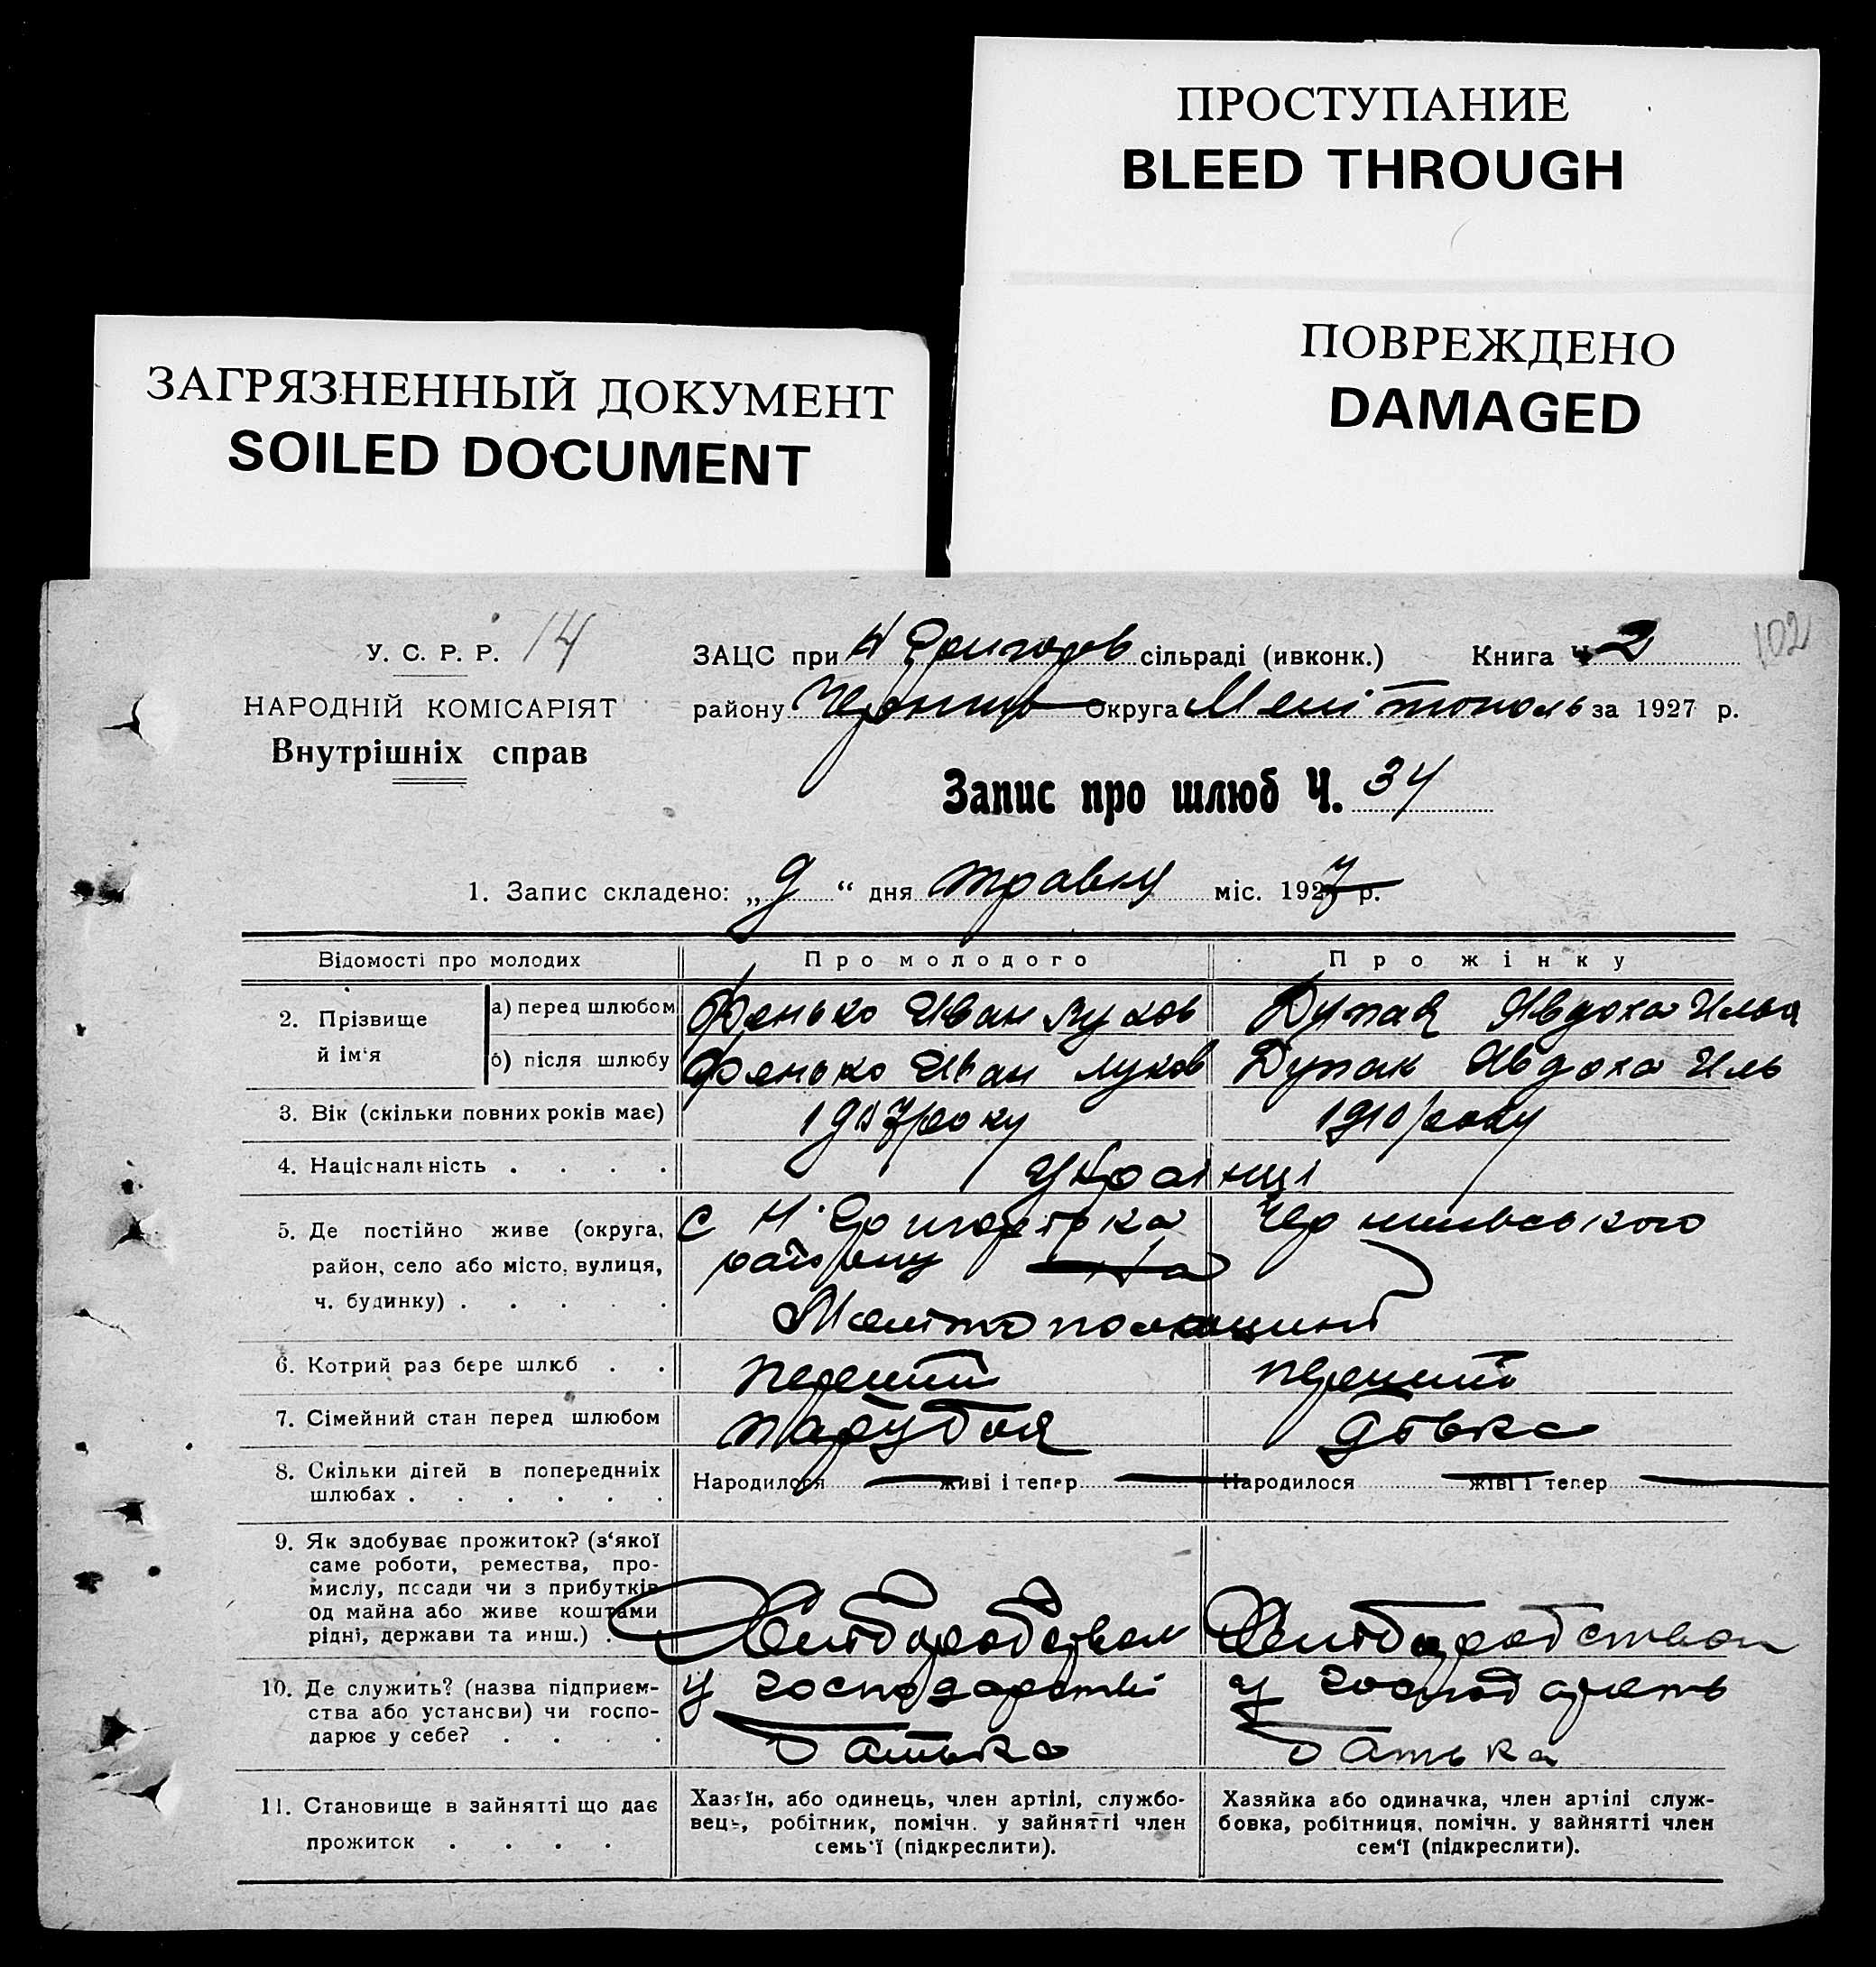 ПРОСТУПАНИЕ
BLEED THROUGH
ПОВРЕЖДЕНО
DAMAGED
ЗАГРЯЗНЕННЫЙ ДОКУМЕНТ
SOILED DOCUMENT
У. С. Р. Р. 14
НАРОДНІЙ КОМІСАРІЯТ
Внутрішніх справ
102
ЗАЦС при Н Григоров сільраді (ивконк.) Книга Ч 2
району Черниг Округа Мелітополь за 1927 р.
Запис про шлюб Ч. 34
1. Запис складено: „9“ дня травня міс. 1927 р.
Відомості про молодих Про молодого Про жінку
2. Прізвище й ім'я
а) перед шлюбом Фенько Иван Луков Дупак Явдоха Илья
б) після шлюбу Фенько Иван Луков Дупак Явдоха Иль
3. Вік (скільки повних років має) 1907 року 1910 року
4. Національність . . . . українці
5. Де постійно живе (округа, с Н. Григорівка Чернигівського
район, село або місто, вулиця, району
ч. будинку) . . . . . Мелітопольщині
6. Котрий раз бере шлюб . . перший перший
7. Сімейний стан перед шлюбом парубок дівка
8. Скільки дітей в попередніх Народилося живі і тепер Народилося живі і тепер
шлюбах . . . . . .
9. Як здобуває прожиток? (з'якої
саме роботи, ремества, про-
мислу, посади чи з прибутків
од майна або живе коштами
рідні, держави та инш.) . Хлітборобством Хлітборобством
10. Де служить? (назва підприєм- у господарстві у господарсть
ства або устансви) чи госпо- батька батька
дарює у себе? . . . .
11. Становище в зайнятті що дає
прожиток . . . .
Хазяїн, або одинець, член артілі, службо-
вець, робітник, помічн. у зайнятті член
семь'ї (підкреслити).
Хазяйка або одиначка, член артілі служ-
бовка, робітниця, помічн. у зайнятті член
сем'ї (підкреслити).